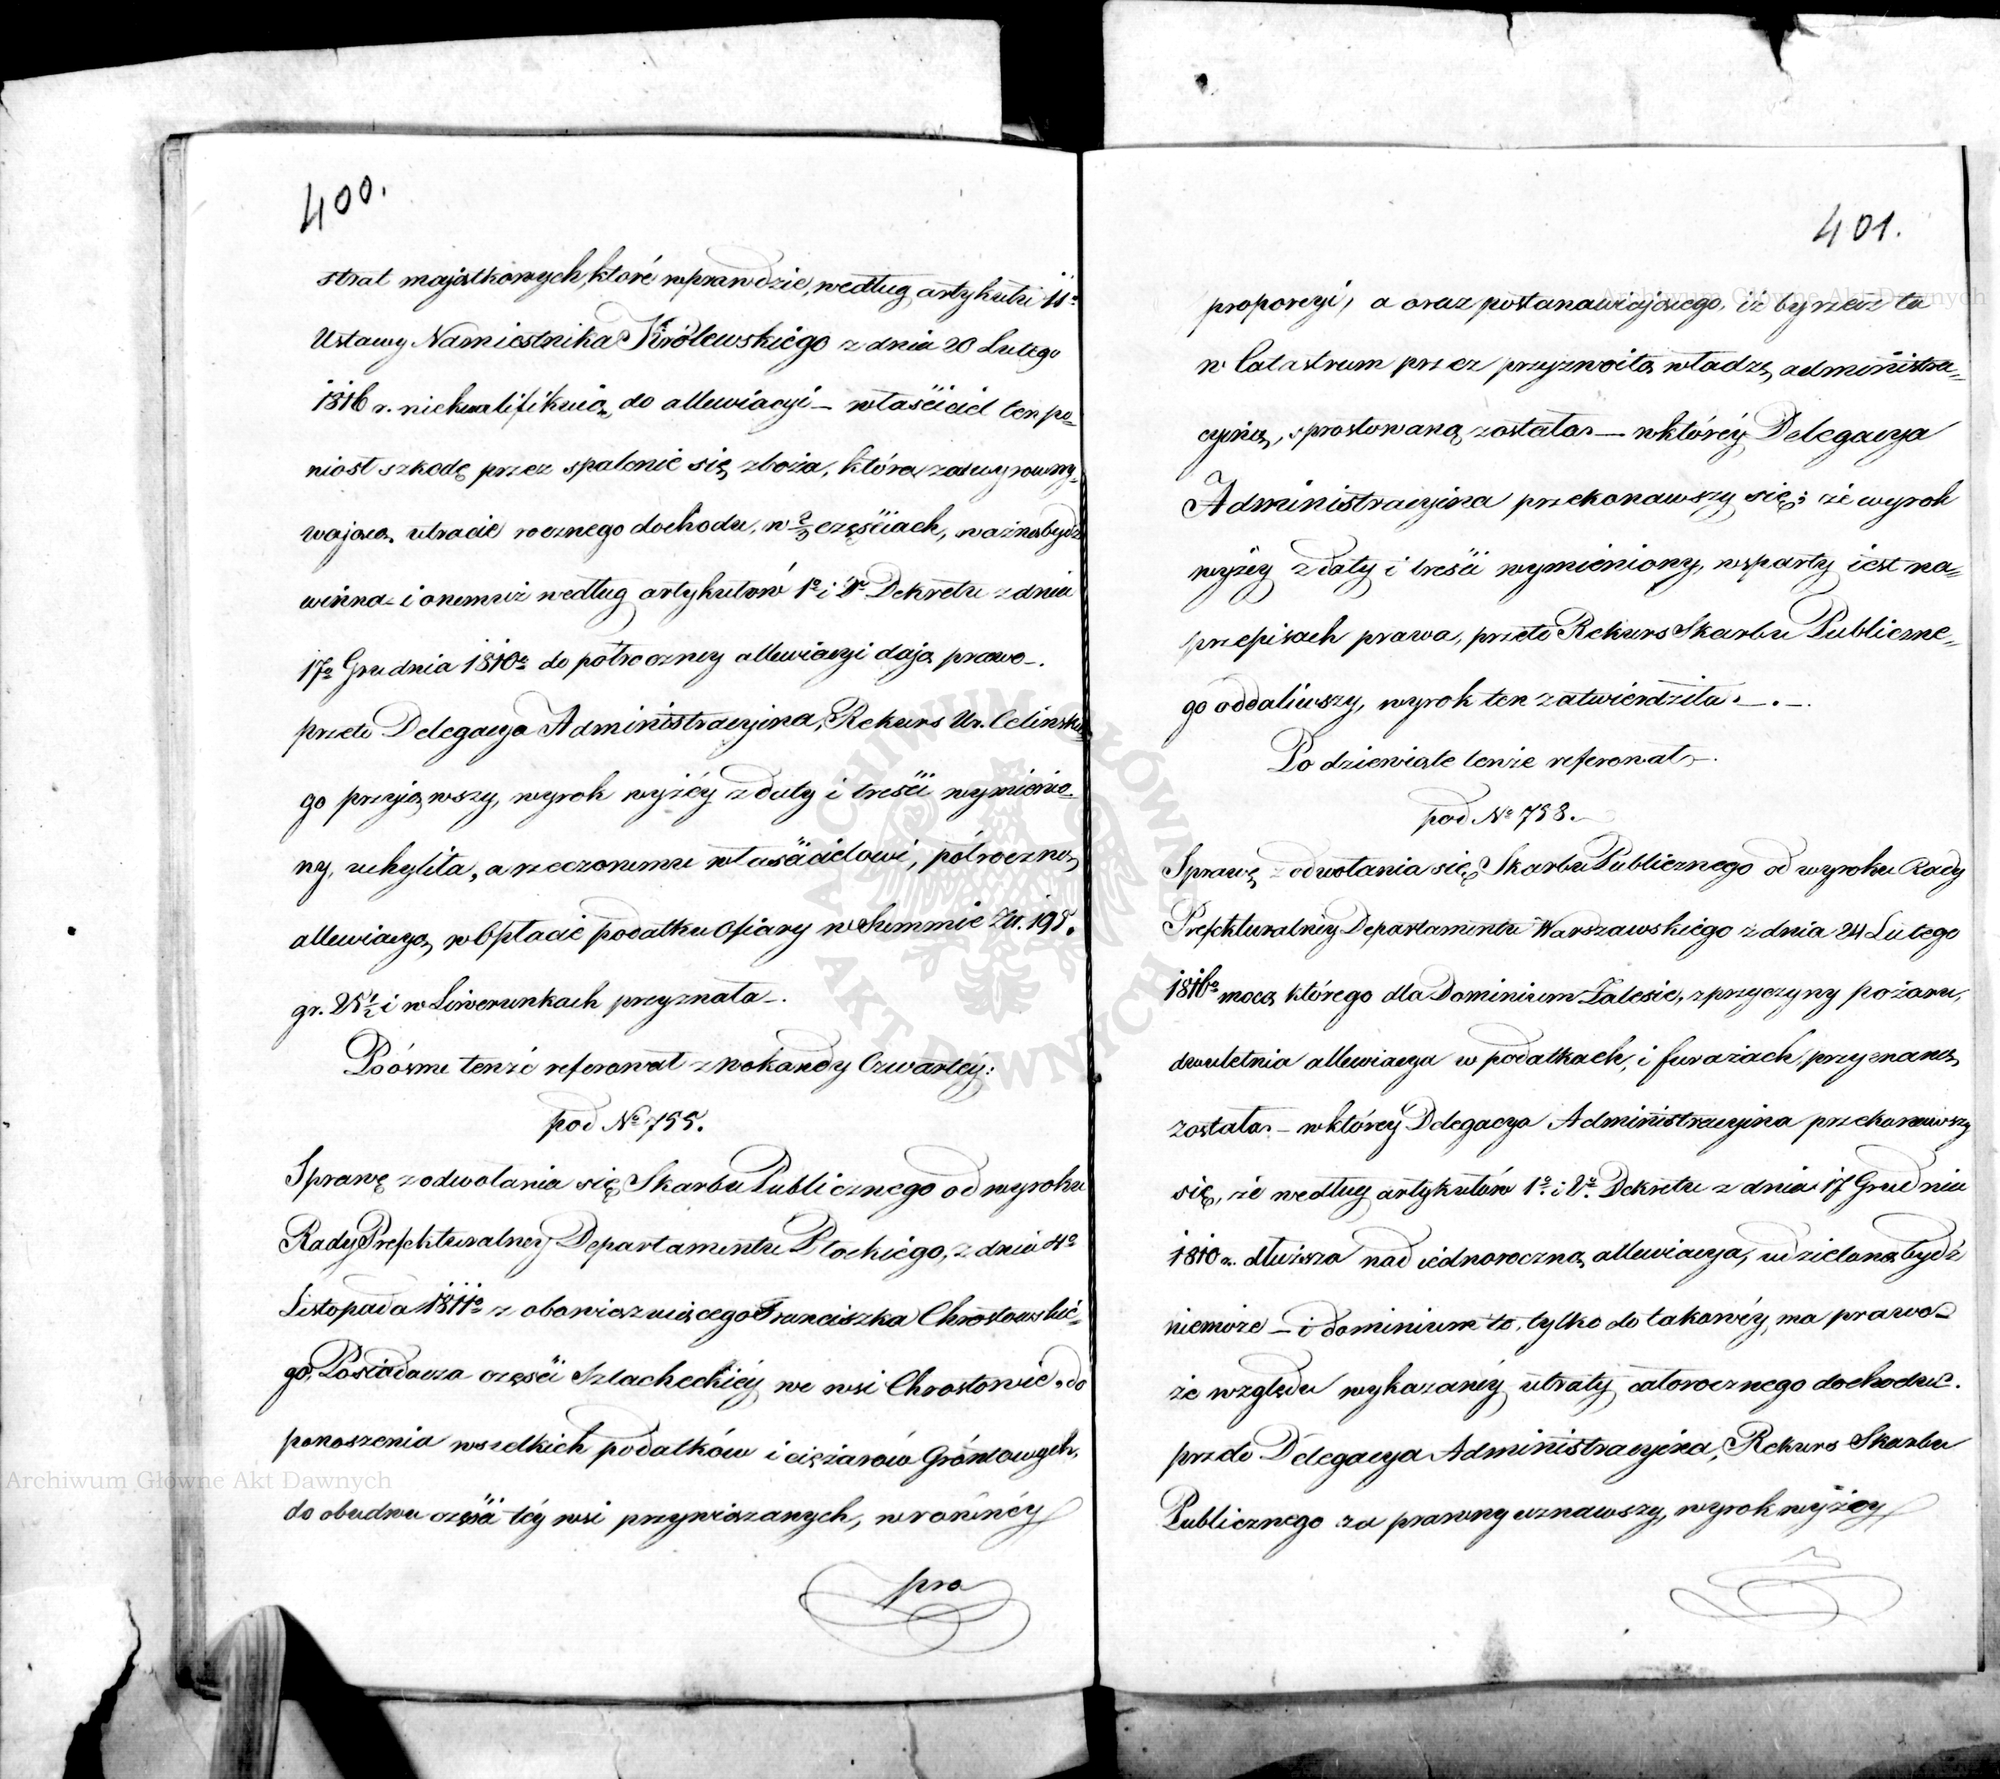 400.
strat majątkowych, które wprawdzie, według artykułu 11º
Ustawy Namiestnika Królewskiego z dnia 20 Lutego
1816 r. niekwalifikuią do allewiacyi – właściciel ten po=
niosł szkodę przez spalenie się zboża, która zaś wyrowny=
waiąca utracie rocznego dochodu, w 2/3 częściach, ważną bydź
winna i onemuż według artykułów 1º i 2º Dekretu z dnia
17º Grudnia 1810º do półroczney allewiacyi daią prawo –.
przeto Delegacya Administracyina, Rekurs Ur. Celińskie=
go przyiąwszy, wyrok wyżéy z daty i treści wymienio=
ny, uchyliła, a rzeczonemu właścicielowi, półroczną
allewiacyą w Opłacie podatku Ofiary w Summie Zł. 195.
gr. 25½ i w Liwerunkach przyznała –.
Poósme tenże referował z wokandy Czwartéy:
pod Nº 755.
Sprawę z odwołania się Skarbu Publicznego od wyroku
Rady Prefekturalney Departamentu Płockiego, z dnia 4º
Listopada 1811º z obowiązuiącego Franciszka Chrostowskie=
go, Posiadacza części Szlacheckiéy we wsi Chrostowie, do
ponoszenia wszelkich podatków i ciężarów Gróntowych,
do obudwu części téy wsi przywiązanych, w rownéy
pro
401.
proporcyi, a oraz postanawiaiącego, iż by rzecz ta
w Catastrum przez przyzwoitą władzę administra=
cyiną, sprostowaną została – w któréy Delegacya
Administracyina przekonawszy się; że wyrok
wyżéy z daty i treści wymieniony, wsparty iest na=
przepisach prawa, przeto Rekurs Skarbu Publiczne=
go oddaliwszy, wyrok ten zatwierdziła. –.–.
Po dziewiąte tenże referował –.
pod Nº 758.
Sprawę z odwołania się Skarbu Publicznego od wyroku Rady
Prefekturalnéy Departamentu Warszawskiego z dnia 24 Lutego
1816º mocą którego dla Dominium Zalesie, z przyczyny pożaru,
dwuletnia allewiacya w podatkach, i furażach przyznaną
została – w któréy Delegacya Administracyina przekonawszy
się, że według artykułów 1º i 2º Dekretu z dnia 17 Grudnia
1810 r. dłuższa nad iednoroczną allewiacya, udzieloną bydź
niemoże – i dominium to, tylko do takowéy, ma prawo –
ze względu wykazanéy utraty całorocznego dochodu –.
przeto Delegacya Administracyina, Rekurs Skarbu
Publicznego za prawny uznawszy, wyrok wyżéy
Archiwum Główne Akt Dawnych
Archiwum Główne Akt Dawnych
ARCHIWUM GŁÓWNE AKT DAWNYCH